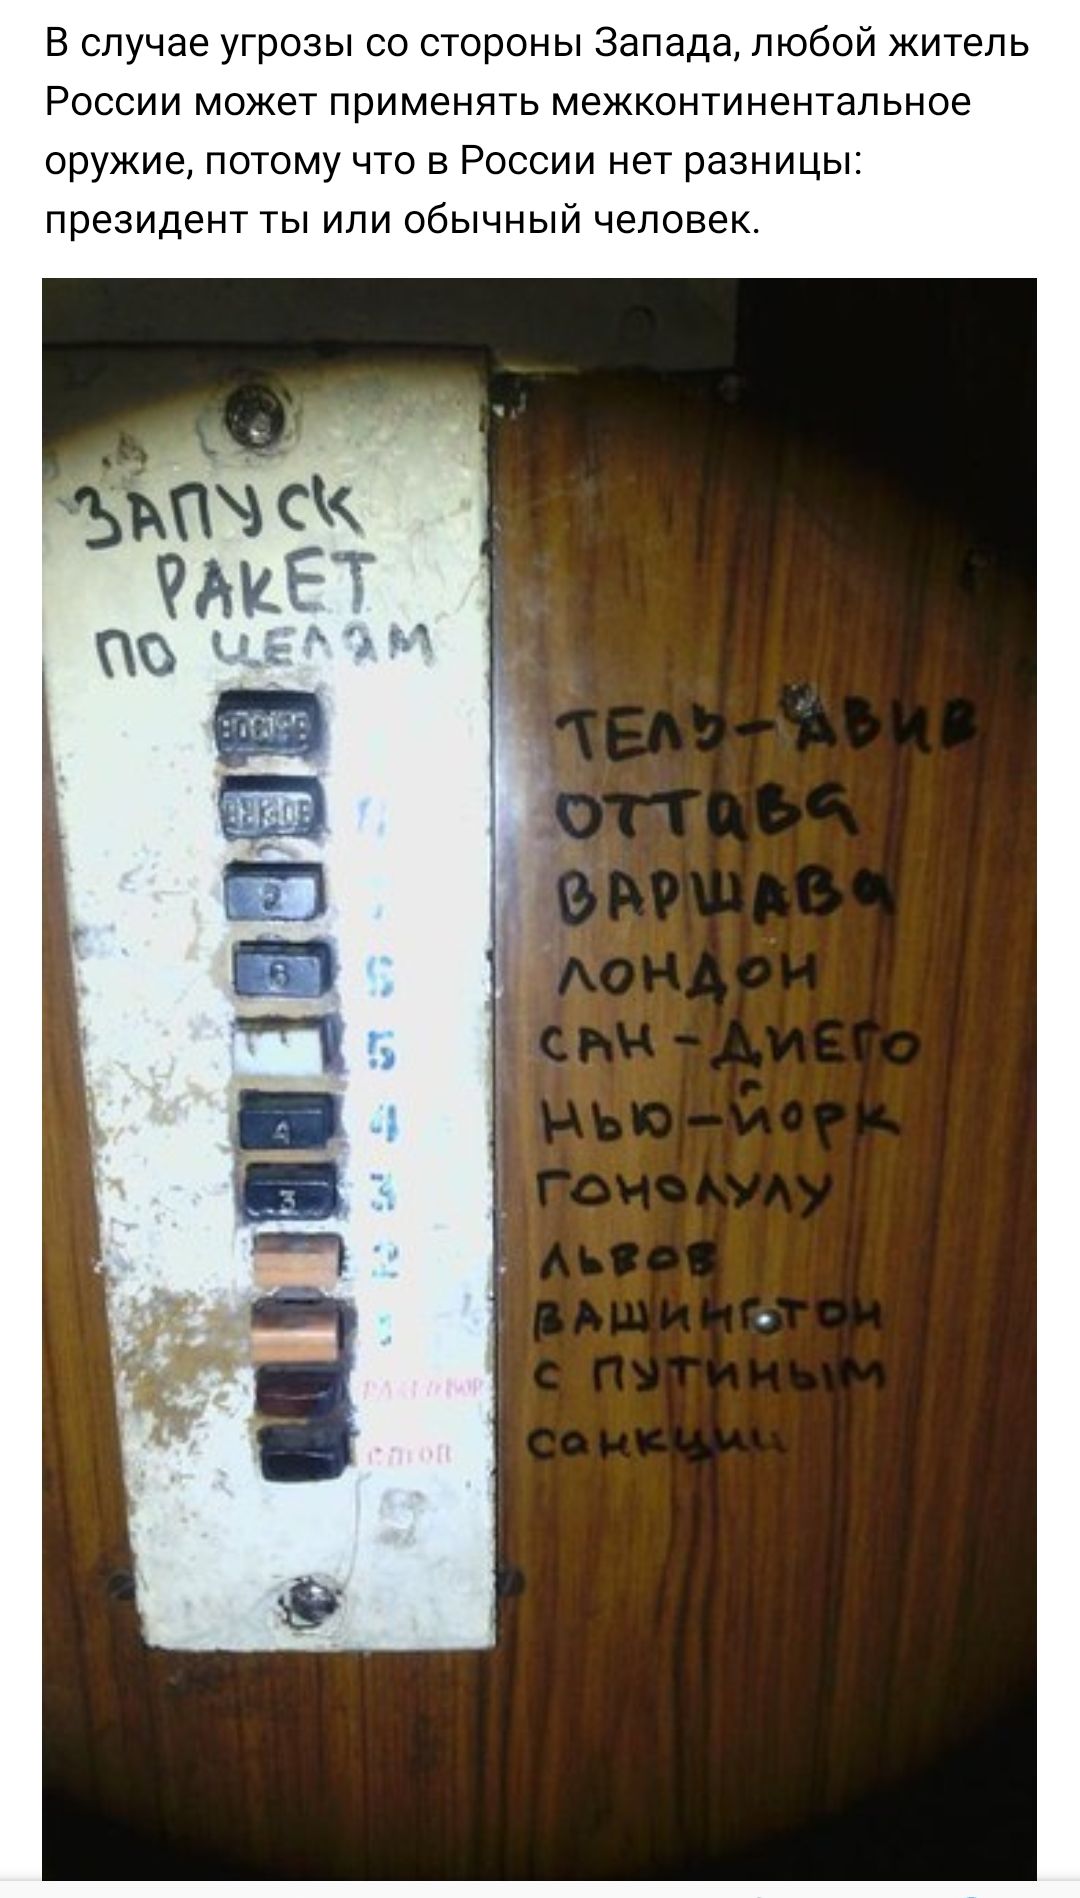 В случае угрозы со стороны Запада, любой житель
России может применять межконтинентальное
оружие, потому что в России нет разницы:
президент ты или обычный человек.
ЗАПУСК
РАКЕТ
ПО ЦЕЛЯМ
ТЕЛЬ-АВИВ
ОТТАВА
ВАРШАВА
6 6 ЛОНДОН
5 САН-ДИЕГО
4 4 НЬЮ-ЙОРК
3 3 ГОНОЛУЛУ
2 ЛЬВОВ
1 ВАШИНГТОН
РАЗГОВОР С ПУТИНЫМ
СТОП САНКЦИИ